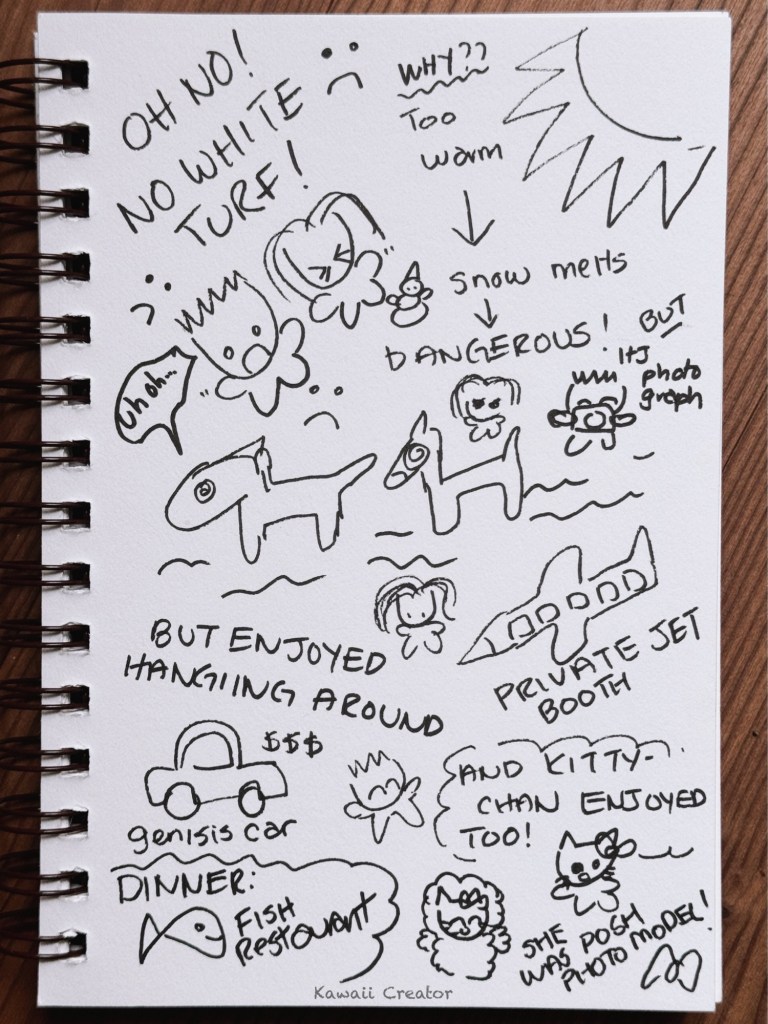 OH NO!
NO WHITE
TURF!
WHY??
Too
warm
snow melts
DANGEROUS!
BUT
ITS
photo
graph
uh oh...
BUT ENJOYED
HANGIING AROUND
PRIVATE JET
BOOTH
$$$
genisis car
AND KITTY-
CHAN ENJOYED
TOO!
DINNER:
FISH
Restaurant
SHE
WAS POSH
PHOTO MODEL!
Kawaii Creator